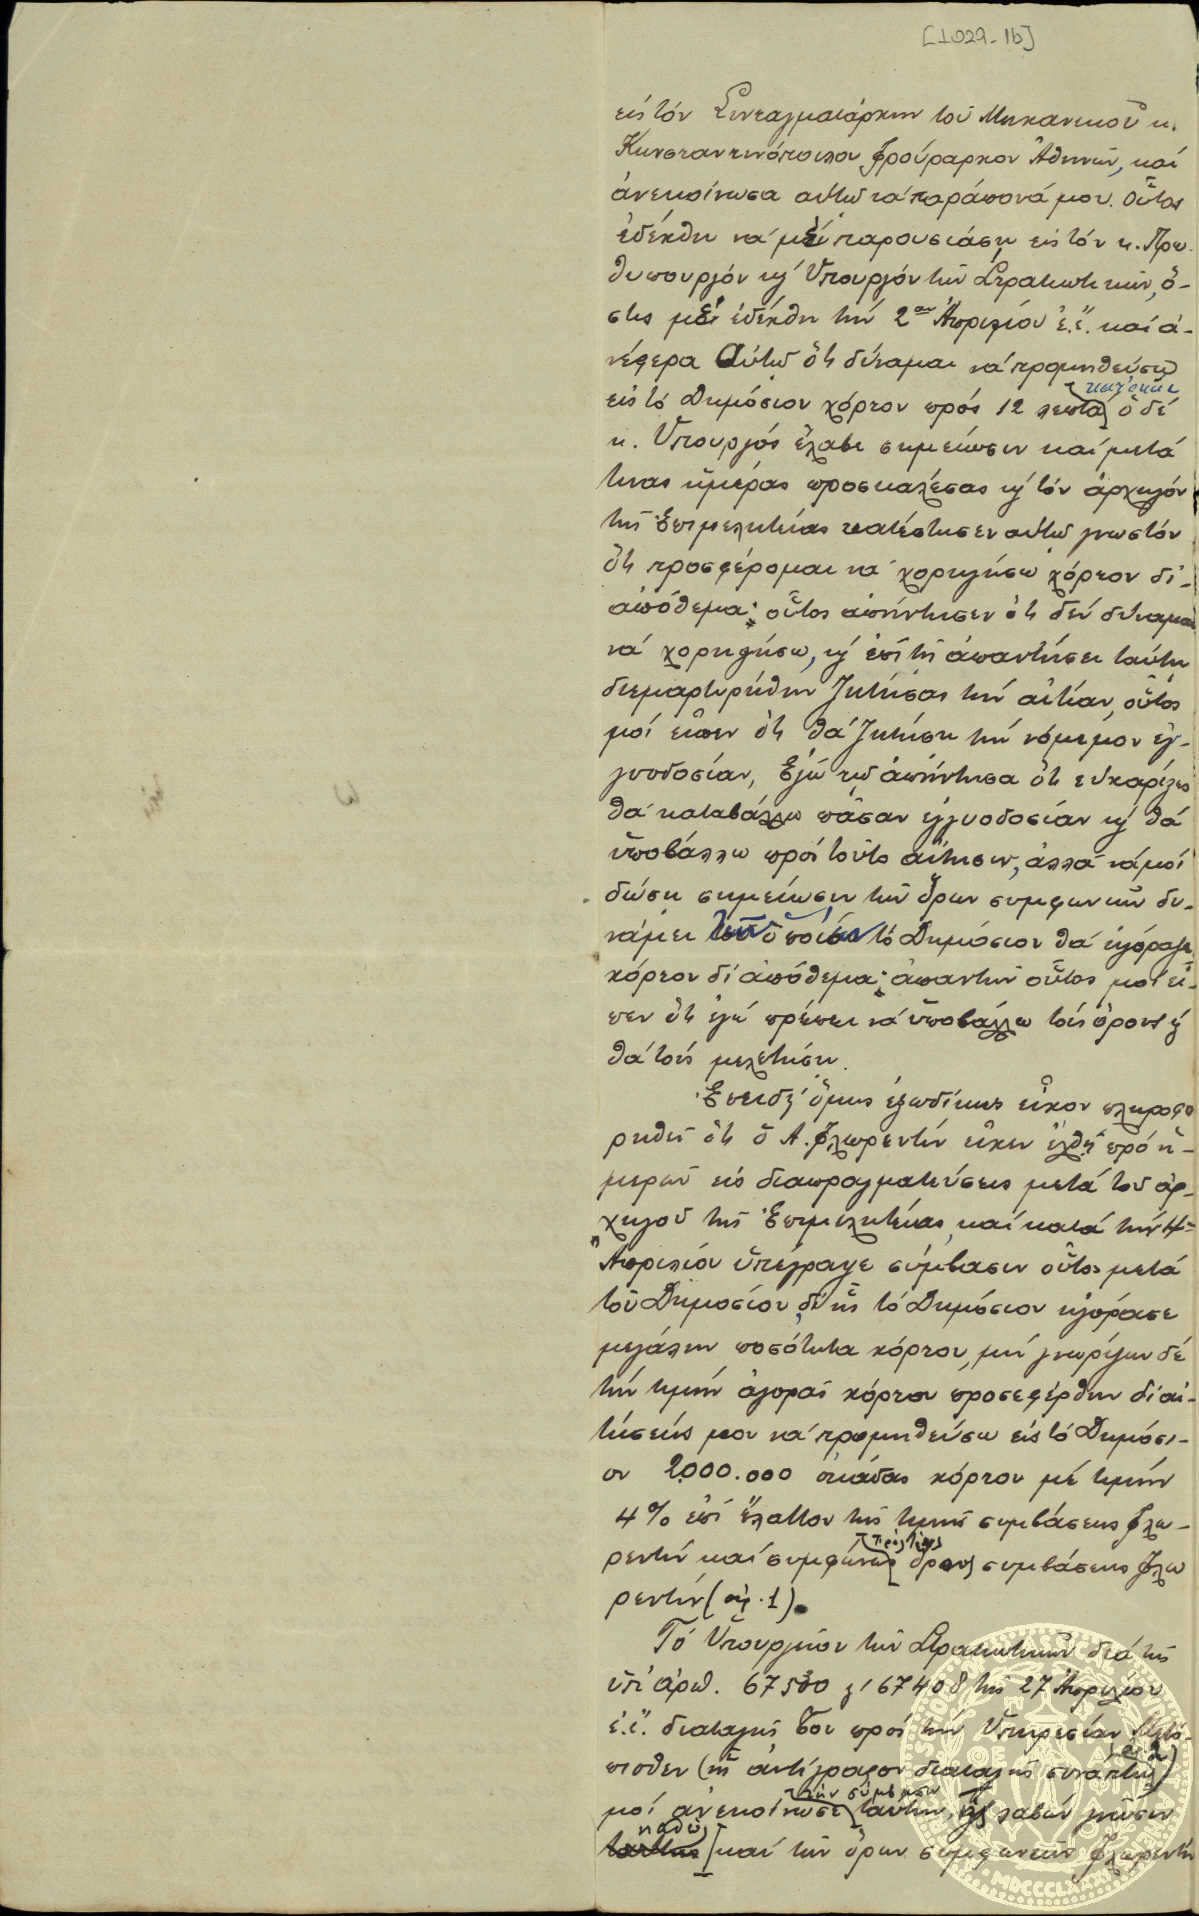 [1029-1b]
εἰς τόν Συνταγματάρχην τοῦ Μηχανικοῦ κ.
Κωνσταντινόπουλον Φρούραρχον Ἀθηνῶν, καί
ἀνεκοίνωσα αὐτῷ τά παράπονά μου. Οὗτος
ἐδέχθη νά μέ παρουσιάσῃ εἰς τόν κ. Πρω-
θυπουργόν κ' Ὑπουργόν τῶν Στρατιωτικῶν, ὅ-
στις μέ ἐδέχθη τήν 2αν Ἀπριλίου ἐ.ἔ. καί ἀ-
νέφερα αὐτῷ ὅτι δύναμαι νά προμηθεύσω
κατ' ὀκᾶν
εἰς τό Δημόσιον χόρτον πρός 12 λεπτά ὁ δέ
κ. Ὑπουργός ἔλαβε σημείωσιν καί μετά
τινας ἡμέρας προσκαλέσας κ' τόν ἀρχηγόν
τῆς Ἐπιμελητείας κατέστησεν αὐτῷ γνωστόν
ὅτι προσφέρομαι νά χορηγήσω χόρτον δι'
ἀπόθεμα· οὗτος ἀπήντησεν ὅτι δέν δύναμαι
νά χορηγήσω, κ' ἐπί τῇ ἀπαντήσει ταύτῃ
διεμαρτυρήθην ζητήσας τήν αἰτίαν, οὗτος
μοί εἶπεν ὅτι θά ζητήσῃ τήν νόμιμον ἐγ-
γυοδοσίαν, Ἐγώ τῷ ἀπήντησα ὅτι εὐχαρίστως
θά καταβάλλω πᾶσαν ἐγγυοδοσίαν κ' θά
ὑποβάλλω πρός τοῦτο αἴτησιν, ἀλλά νά μοί
δώσῃ σημείωσιν τῶν ὅρων συμφώνων δυ-
νάμει τῶν ὁποίων τό Δημόσιον θά ἠγόραζε
χόρτον δι' ἀπόθεμα· ἀπαντῶν οὗτος μοί εἶ-
πεν ὅτι ἐγώ πρέπει νά ὑποβάλλω τούς ὅρους κ'
θά τούς μελετήσῃ.
Ἐπειδή ὅμως ἐξωδίκως εἶχον πληροφο
ρηθεῖ ὅτι ὁ Α. Φλωρεντίν εἶχεν ἔλθῃ πρό ἡ-
μερῶν εἰς διαπραγματεύσεις μετά τοῦ ἀρ-
χηγοῦ τῆς Ἐπιμελητείας, καί κατά τήν 4ην
Ἀπριλίου ὑπέγραψε σύμβασιν οὗτος μετά
τοῦ Δημοσίου, δι' ἧς τό Δημόσιον ἠγόρασε
μεγάλην ποσότητα χόρτου, μή γνωρίζων δέ
τήν τιμήν ἀγορᾶς χόρτου προσεφέρθην δι' αἰ-
τήσεώς μου νά προμηθεύσω εἰς τό Δημόσι-
ον 2.000.000 ὀκάδας χόρτου μέ τιμήν
4% ἐπί ἔλαττον τῆς τιμῆς συμβάσεως Φλω-
πρός τούς
ρεντίν καί συμφώνως ὅρους συμβάσεως Φλω
ρεντίν (σχ. 1).
Τό Ὑπουργεῖον τῶν Στρατιωτικῶν διά τῆς
ὑπ' ἀριθ. 67530 κ' 67408 τῆς 27 Ἀπριλίου
ἐ.ἔ. διαταγῆς του πρός τήν Ὑπηρεσίαν
πισθεν (ἧς ἀντίγραφον διαταγῆς συνάπτω)
τήν σύμβασιν
μοί ἀνεκοίνωσε ταύτην, ἧς λαβών γνῶσιν
καθώς
καί τῶν ὅρων συμφώνων Φλωρεντίν